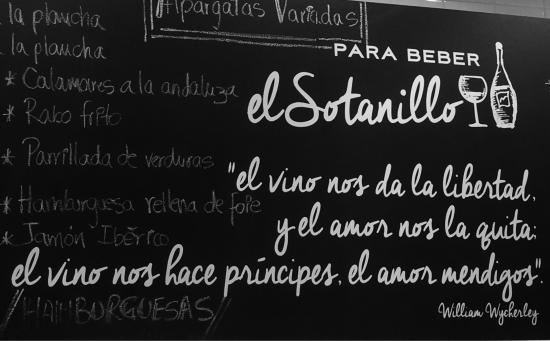 Alpargatas Variadas
la plancha
la plancha
* Calamares a la andaluza
* Rabo frito
* Parrillada de verduras
* Hamburguesa rellena de foie
* Jamón Ibérico
/HAMBURGUESAS/
PARA BEBER
el Sotanillo
"el vino nos da la libertad,
y el amor nos la quita;
el vino nos hace príncipes, el amor mendigos".
William Wycherley